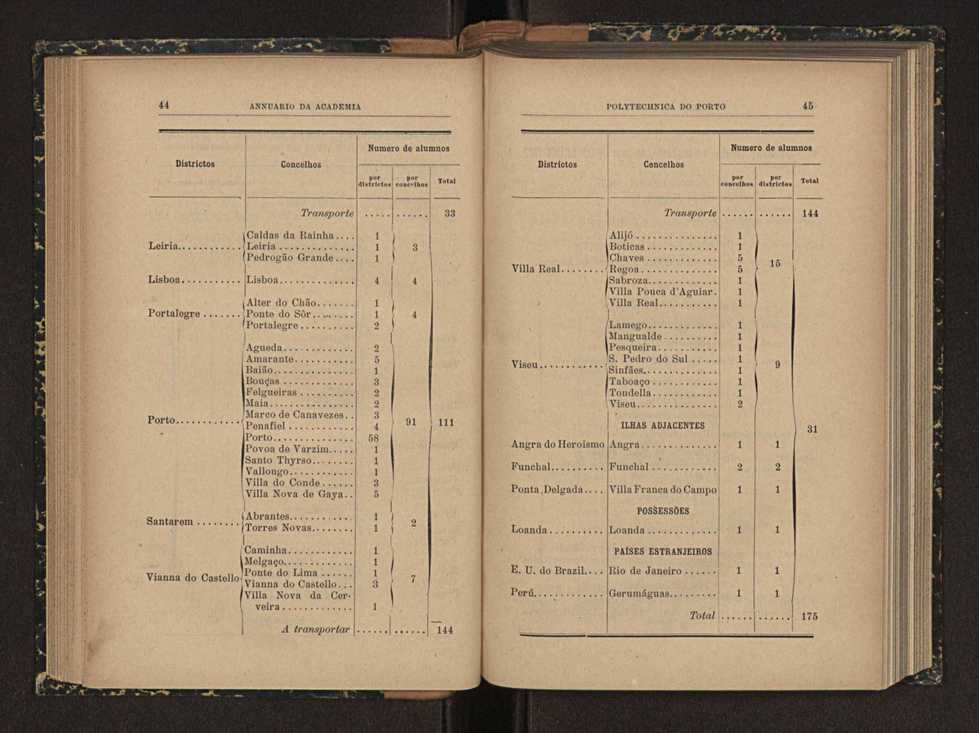 44 ANNUARIO DA ACADEMIA
Districtos Concelhos Numero de alumnos
por districtos por concelhos Total
Transporte ..... ...... 33
Leiria........... Caldas da Rainha.... 1
Leiria ............. 1 3
Pedrogão Grande.... 1
Lisboa.......... Lisboa............. 4 4
Alter do Chão....... 1
Portalegre ....... Ponte do Sôr........ 1 4
Portalegre ......... 2
Agueda............ 2
Amarante........... 5
Baião.............. 1
Bouças ............ 3
Felgueiras ......... 2
Maia.............. 2
Marco de Canavezes.. 3
Porto........... Penafiel ........... 4 91 111
Porto.............. 58
Povoa de Varzim..... 1
Santo Thyrso....... 1
Vallongo........... 1
Villa do Conde ...... 3
Villa Nova de Gaya.. 5
Santarem ........ Abrantes.......... 1 2
Torres Novas....... 1
Caminha........... 1
Melgaço............ 1
Ponte do Lima ...... 1
Vianna do Castello Vianna do Castello... 3 7
Villa Nova da Cer-
veira ............ 1
A transportar ...... ...... 144
POLYTECHNICA DO PORTO 45
Districtos Concelhos Numero de alumnos
por concelhos por districtos Total
Transporte ...... ...... 144
Alijó .............. 1
Boticas ............ 1
Chaves ............ 5
Villa Real........ Regoa............. 5 15
Sabroza............ 1
Villa Pouca d'Aguiar. 1
Villa Real.......... 1
Lamego............ 1
Mangualde ......... 1
Pesqueira........... 1
S. Pedro do Sul ..... 1
Viseu........... Sinfães............. 1 9
Taboaço ........... 1
Tondella........... 1
Viseu.............. 2
ILHAS ADJACENTES
31
Angra do Heroismo Angra............. 1 1
Funchal......... Funchal ........... 2 2
Ponta Delgada.... Villa Franca do Campo 1 1
POSSESSÕES
Loanda......... Loanda ........... 1 1
PAÍSES ESTRANJEIROS
E. U. do Brazil.... Rio de Janeiro ...... 1 1
Perú............ Gerumáguas......... 1 1
Total ...... ...... 175